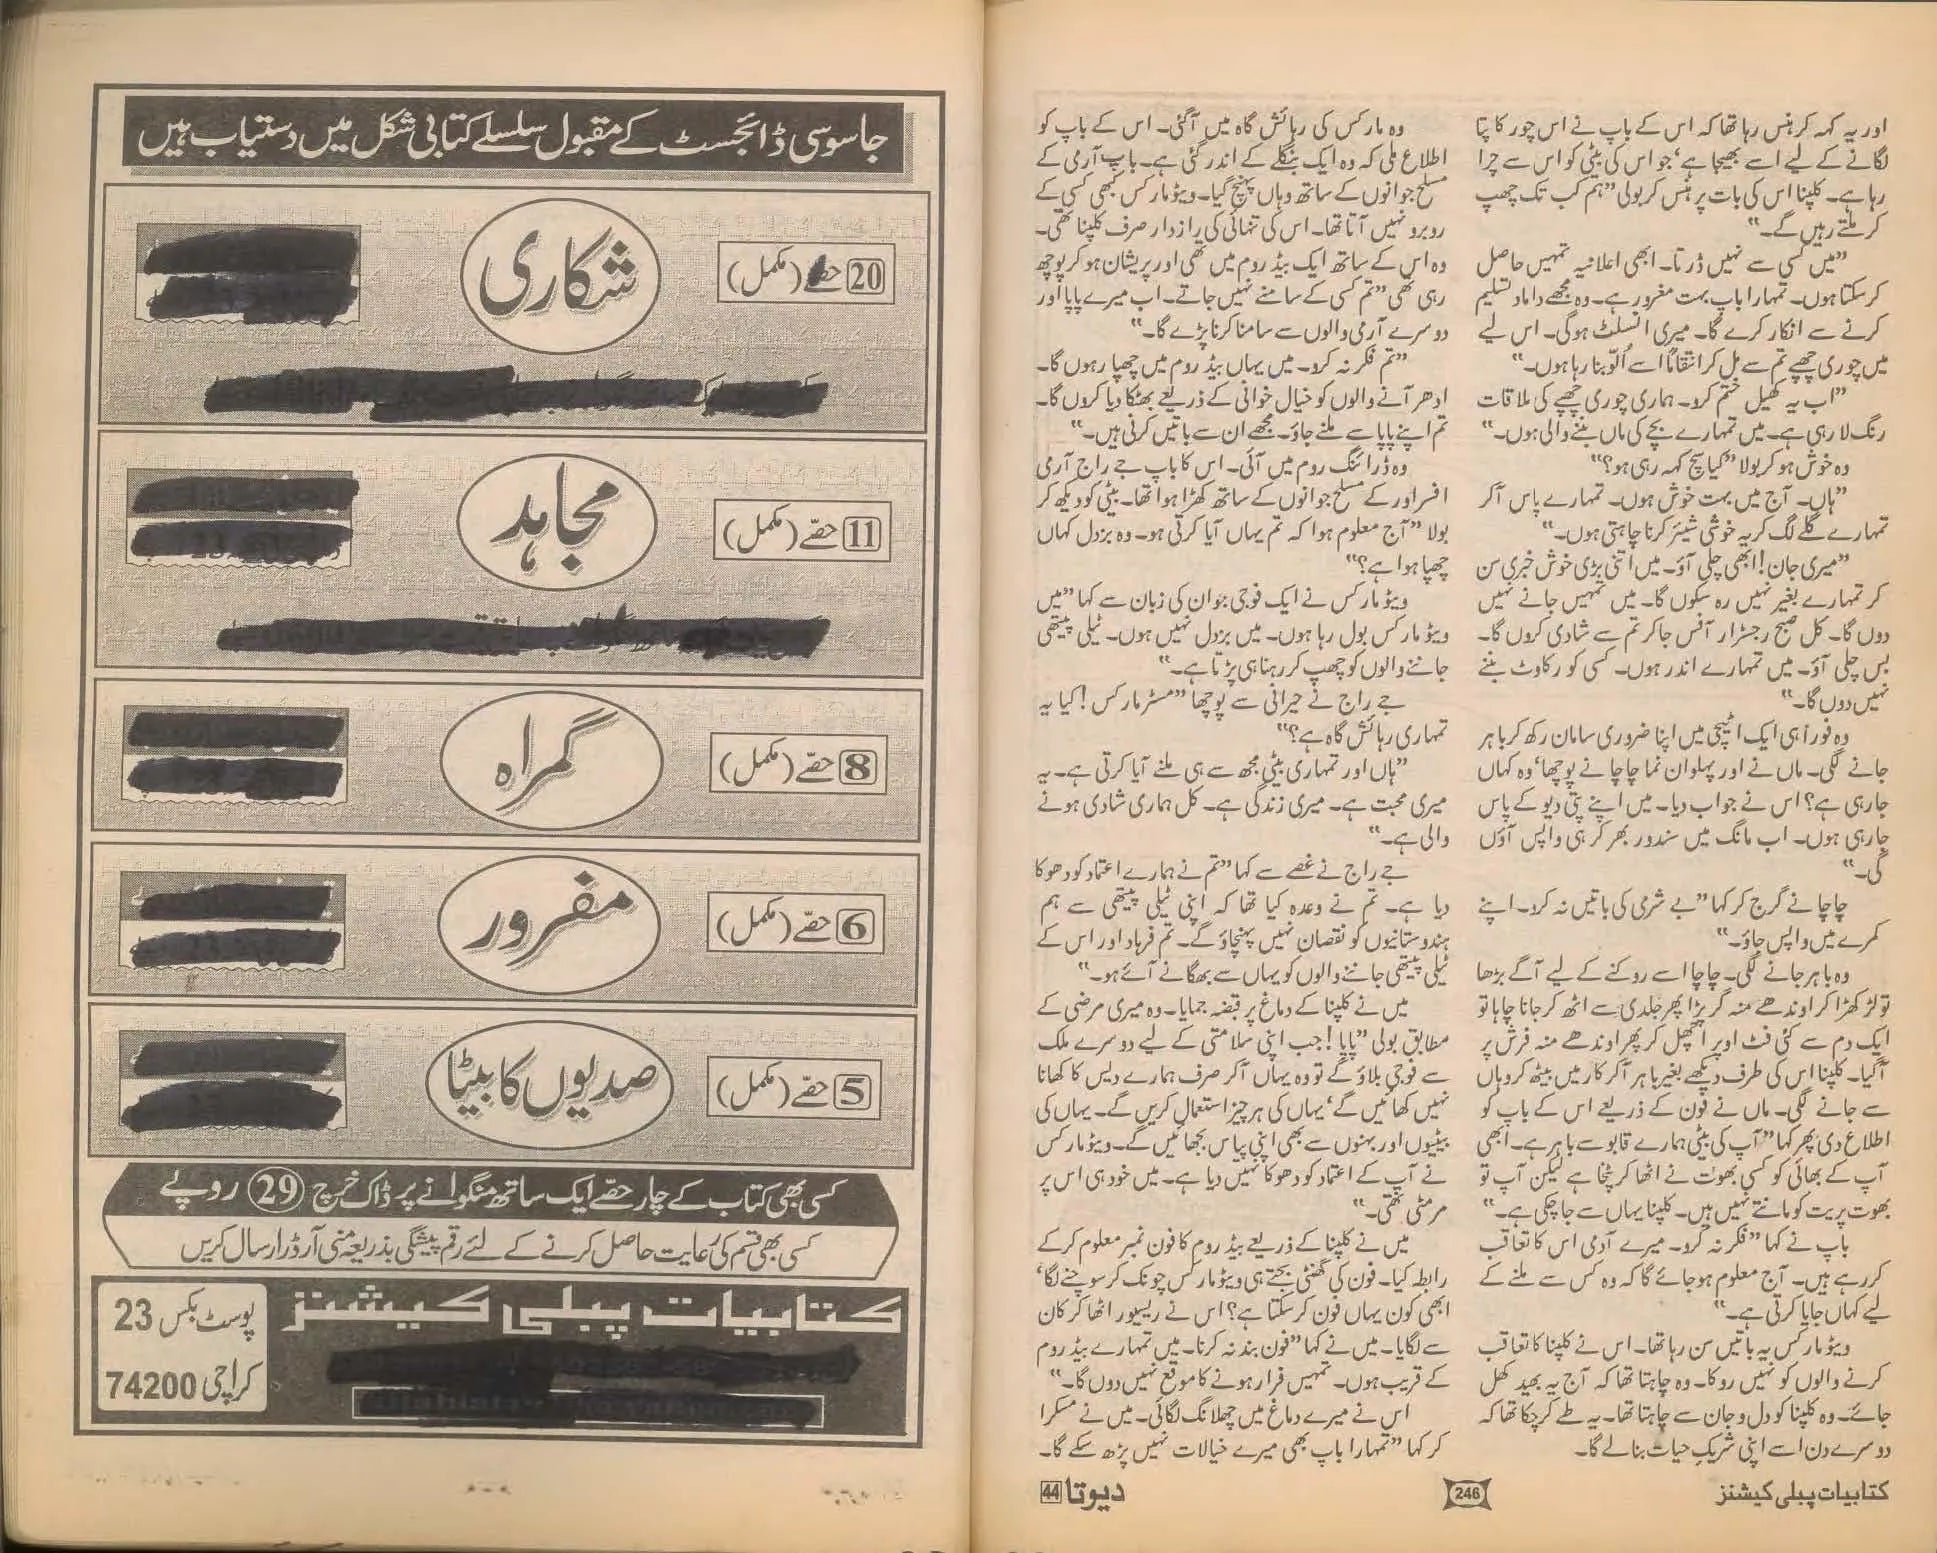 اور یہ کہہ کر ہنس رہا تھا کہ اس کے باپ نے اس چور کا پتا
لگانے کے لیے اسے بھیجا ہے‘ جو اس کی بیٹی کو اس سے چرا
رہا ہے۔ کلپنا اس کی بات پر ہنس کر بولی ”ہم کب تک چھپ
کر ملتے رہیں گے۔“
”میں کسی سے نہیں ڈرتا۔ ابھی اعلانیہ تمہیں حاصل
کر سکتا ہوں۔ تمہارا باپ بہت مغرور ہے۔ وہ مجھے داماد تسلیم
کرنے سے انکار کرے گا۔ میری انسلٹ ہوگی۔ اس لیے
میں چوری چھپے تم سے مل کر انتقاماً اسے اُلّو بنا رہا ہوں۔“
”اب یہ کھیل ختم کرو۔ ہماری چوری چھپے کی ملاقات
رنگ لا رہی ہے۔ میں تمہارے بچے کی ماں بننے والی ہوں۔“
وہ خوش ہو کر بولا ”کیا سچ کہہ رہی ہو؟“
”ہاں۔ آج میں بہت خوش ہوں۔ تمہارے پاس آکر
تمہارے گلے لگ کر یہ خوشی شیئر کرنا چاہتی ہوں۔“
”میری جان! ابھی چلی آؤ۔ میں اتنی بڑی خوش خبری سن
کر تمہارے بغیر نہیں رہ سکوں گا۔ میں تمہیں جانے نہیں
دوں گا۔ کل صبح رجسٹرار آفس جاکر تم سے شادی کروں گا۔
بس چلی آؤ۔ میں تمہارے اندر ہوں۔ کسی کو رکاوٹ بننے
نہیں دوں گا۔“
وہ فوراً ہی ایک اٹیچی میں اپنا ضروری سامان رکھ کر باہر
جانے لگی۔ ماں نے اور پہلوان نما چاچا نے پوچھا‘ وہ کہاں
جا رہی ہے؟ اس نے جواب دیا۔ میں اپنے پتی دیو کے پاس
جا رہی ہوں۔ اب مانگ میں سندور بھر کر ہی واپس آؤں
گی۔“
چاچا نے گرج کر کہا ”بے شرمی کی باتیں نہ کرو۔ اپنے
کمرے میں واپس جاؤ۔“
وہ باہر جانے لگی۔ چاچا اسے روکنے کے لیے آگے بڑھا
تو لڑکھڑا کر اوندھے منہ گر پڑا پھر جلدی سے اٹھ کر جانا چاہا تو
ایک دم سے کئی فٹ اوپر اچھل کر پھر اوندھے منہ فرش پر
آگیا۔ کلپنا اس کی طرف دیکھے بغیر باہر آکر کار میں بیٹھ کر وہاں
سے جانے لگی۔ ماں نے فون کے ذریعے اس کے باپ کو
اطلاع دی پھر کہا ”آپ کی بیٹی ہمارے قابو سے باہر ہے۔ ابھی
آپ کے بھائی کو کسی بھوت نے اٹھا کر پٹخا ہے لیکن آپ تو
بھوت پریت کو مانتے نہیں ہیں۔ کلپنا یہاں سے جا چکی ہے۔“
باپ نے کہا ”فکر نہ کرو۔ میرے آدمی اس کا تعاقب
کر رہے ہیں۔ آج معلوم ہو جائے گا کہ وہ کس سے ملنے کے
لیے کہاں جایا کرتی ہے۔“
ویٹو مارکس یہ باتیں سن رہا تھا۔ اس نے کلپنا کا تعاقب
کرنے والوں کو نہیں روکا۔ وہ چاہتا تھا کہ آج یہ بھید کھل
جائے۔ وہ کلپنا کو دل و جان سے چاہتا تھا۔ یہ طے کر چکا تھا کہ
دوسرے دن اسے اپنی شریک حیات بنا لے گا۔
وہ مارکس کی رہائش گاہ میں آگئی۔ اس کے باپ کو
اطلاع ملی کہ وہ ایک بنگلے کے اندر گئی ہے۔ باپ آرمی کے
مسلح جوانوں کے ساتھ وہاں پہنچ گیا۔ ویٹو مارکس کبھی کسی کے
روبرو نہیں آتا تھا۔ اس کی تنہائی کی رازدار صرف کلپنا تھی۔
وہ اس کے ساتھ ایک بیڈ روم میں تھی اور پریشان ہو کر پوچھ
رہی تھی ”تم کسی کے سامنے نہیں جاتے۔ اب میرے پاپا اور
دوسرے آرمی والوں سے سامنا کرنا پڑے گا۔“
”تم فکر نہ کرو۔ میں یہاں بیڈ روم میں چھپا رہوں گا۔
ادھر آنے والوں کو خیال خوانی کے ذریعے بھٹکا دیا کروں گا۔
تم اپنے پاپا سے ملنے جاؤ۔ مجھے ان سے باتیں کرنی ہیں۔“
وہ ڈرائنگ روم میں آئی۔ اس کا باپ جے راج آرمی
افسر اور کے مسلح جوانوں کے ساتھ کھڑا ہوا تھا۔ بیٹی کو دیکھ کر
بولا ”آج معلوم ہوا کہ تم یہاں آیا کرتی ہو۔ وہ بزدل کہاں
چھپا ہوا ہے؟“
ویٹو مارکس نے ایک فوجی جوان کی زبان سے کہا ”میں
ویٹو مارکس بول رہا ہوں۔ میں بزدل نہیں ہوں۔ ٹیلی پیتھی
جاننے والوں کو چھپ کر رہنا ہی پڑتا ہے۔“
جے راج نے حیرانی سے پوچھا ”مسٹر مارکس! کیا یہ
تمہاری رہائش گاہ ہے؟“
”ہاں اور تمہاری بیٹی مجھ سے ہی ملنے آیا کرتی ہے۔ یہ
میری محبت ہے۔ میری زندگی ہے۔ کل ہماری شادی ہونے
والی ہے۔“
جے راج نے غصے سے کہا ”تم نے ہمارے اعتماد کو دھوکا
دیا ہے۔ تم نے وعدہ کیا تھا کہ اپنی ٹیلی پیتھی سے ہم
ہندوستانیوں کو نقصان نہیں پہنچاؤ گے۔ تم فرہاد اور اس کے
ٹیلی پیتھی جاننے والوں کو یہاں سے بھگانے آئے ہو۔“
میں نے کلپنا کے دماغ پر قبضہ جمایا۔ وہ میری مرضی کے
مطابق بولی ”پاپا! جب اپنی سلامتی کے لیے دوسرے ملک
سے فوجی بلاؤ گے تو وہ یہاں آکر صرف ہمارے دیس کا کھانا
نہیں کھائیں گے‘ یہاں کی ہر چیز استعمال کریں گے۔ یہاں کی
بیٹیوں اور بہنوں سے بھی اپنی پیاس بجھائیں گے۔ ویٹو مارکس
نے آپ کے اعتماد کو دھوکا نہیں دیا ہے۔ میں خود ہی اس پر
مر مٹی تھی۔“
میں نے کلپنا کے ذریعے بیڈ روم کا فون نمبر معلوم کر کے
رابطہ کیا۔ فون کی گھنٹی بجتے ہی ویٹو مارکس چونک کر سوچنے لگا‘
ابھی کون یہاں فون کر سکتا ہے؟ اس نے ریسیور اٹھا کر کان
سے لگایا۔ میں نے کہا ”فون بند نہ کرنا۔ میں تمہارے بیڈ روم
کے قریب ہوں۔ تمہیں فرار ہونے کا موقع نہیں دوں گا۔“
اس نے میرے دماغ میں چھلانگ لگائی۔ میں نے مسکرا
کر کہا ”تمہارا باپ بھی میرے خیالات نہیں پڑھ سکے گا۔
کتابیات پبلی کیشنز
246
دیوتا 44
جاسوسی ڈائجسٹ کے مقبول سلسلے کتابی شکل میں دستیاب ہیں
20 حصے (مکمل)
شکاری
11 حصّے (مکمل)
مجاہد
8 حصّے (مکمل)
گمراہ
6 حصّے (مکمل)
مفرور
5 حصّے (مکمل)
صدیوں کا بیٹا
کسی بھی کتاب کے چار حصّے ایک ساتھ منگوانے پر ڈاک خرچ 29 روپے
کسی بھی قسم کی رعایت حاصل کرنے کے لئے رقم پیشگی بذریعہ منی آرڈر ارسال کریں
کتابیات پبلی کیشنز
پوسٹ بکس 23
کراچی 74200